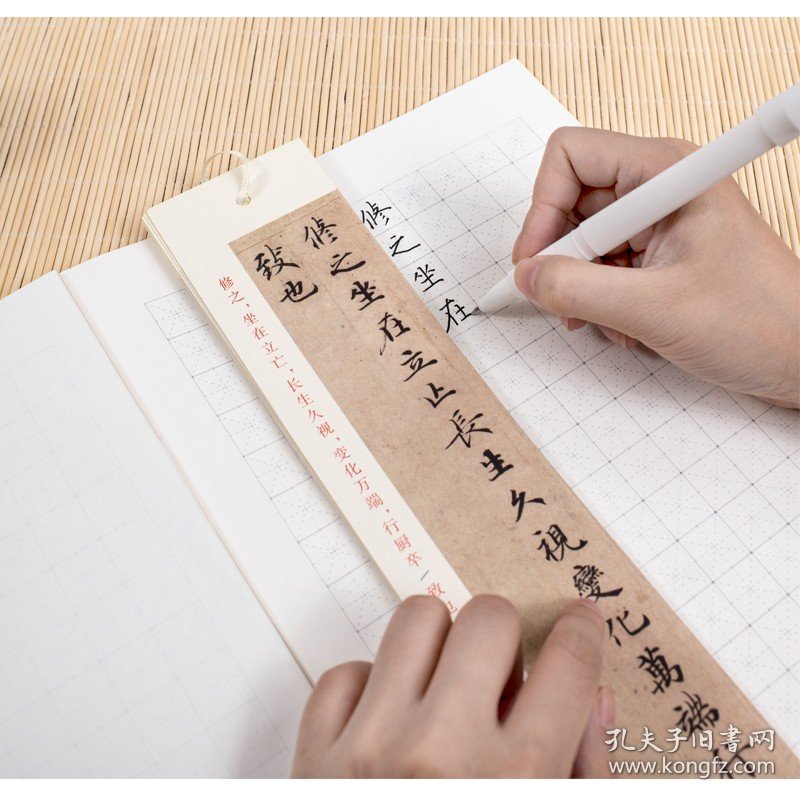 修之坐在
修之坐在立亡長生久視變化萬端行
致也
修之，坐在立亡，长生久视，变化万端，行厨卒一致也
孔夫子旧書网
www.kongfz.com